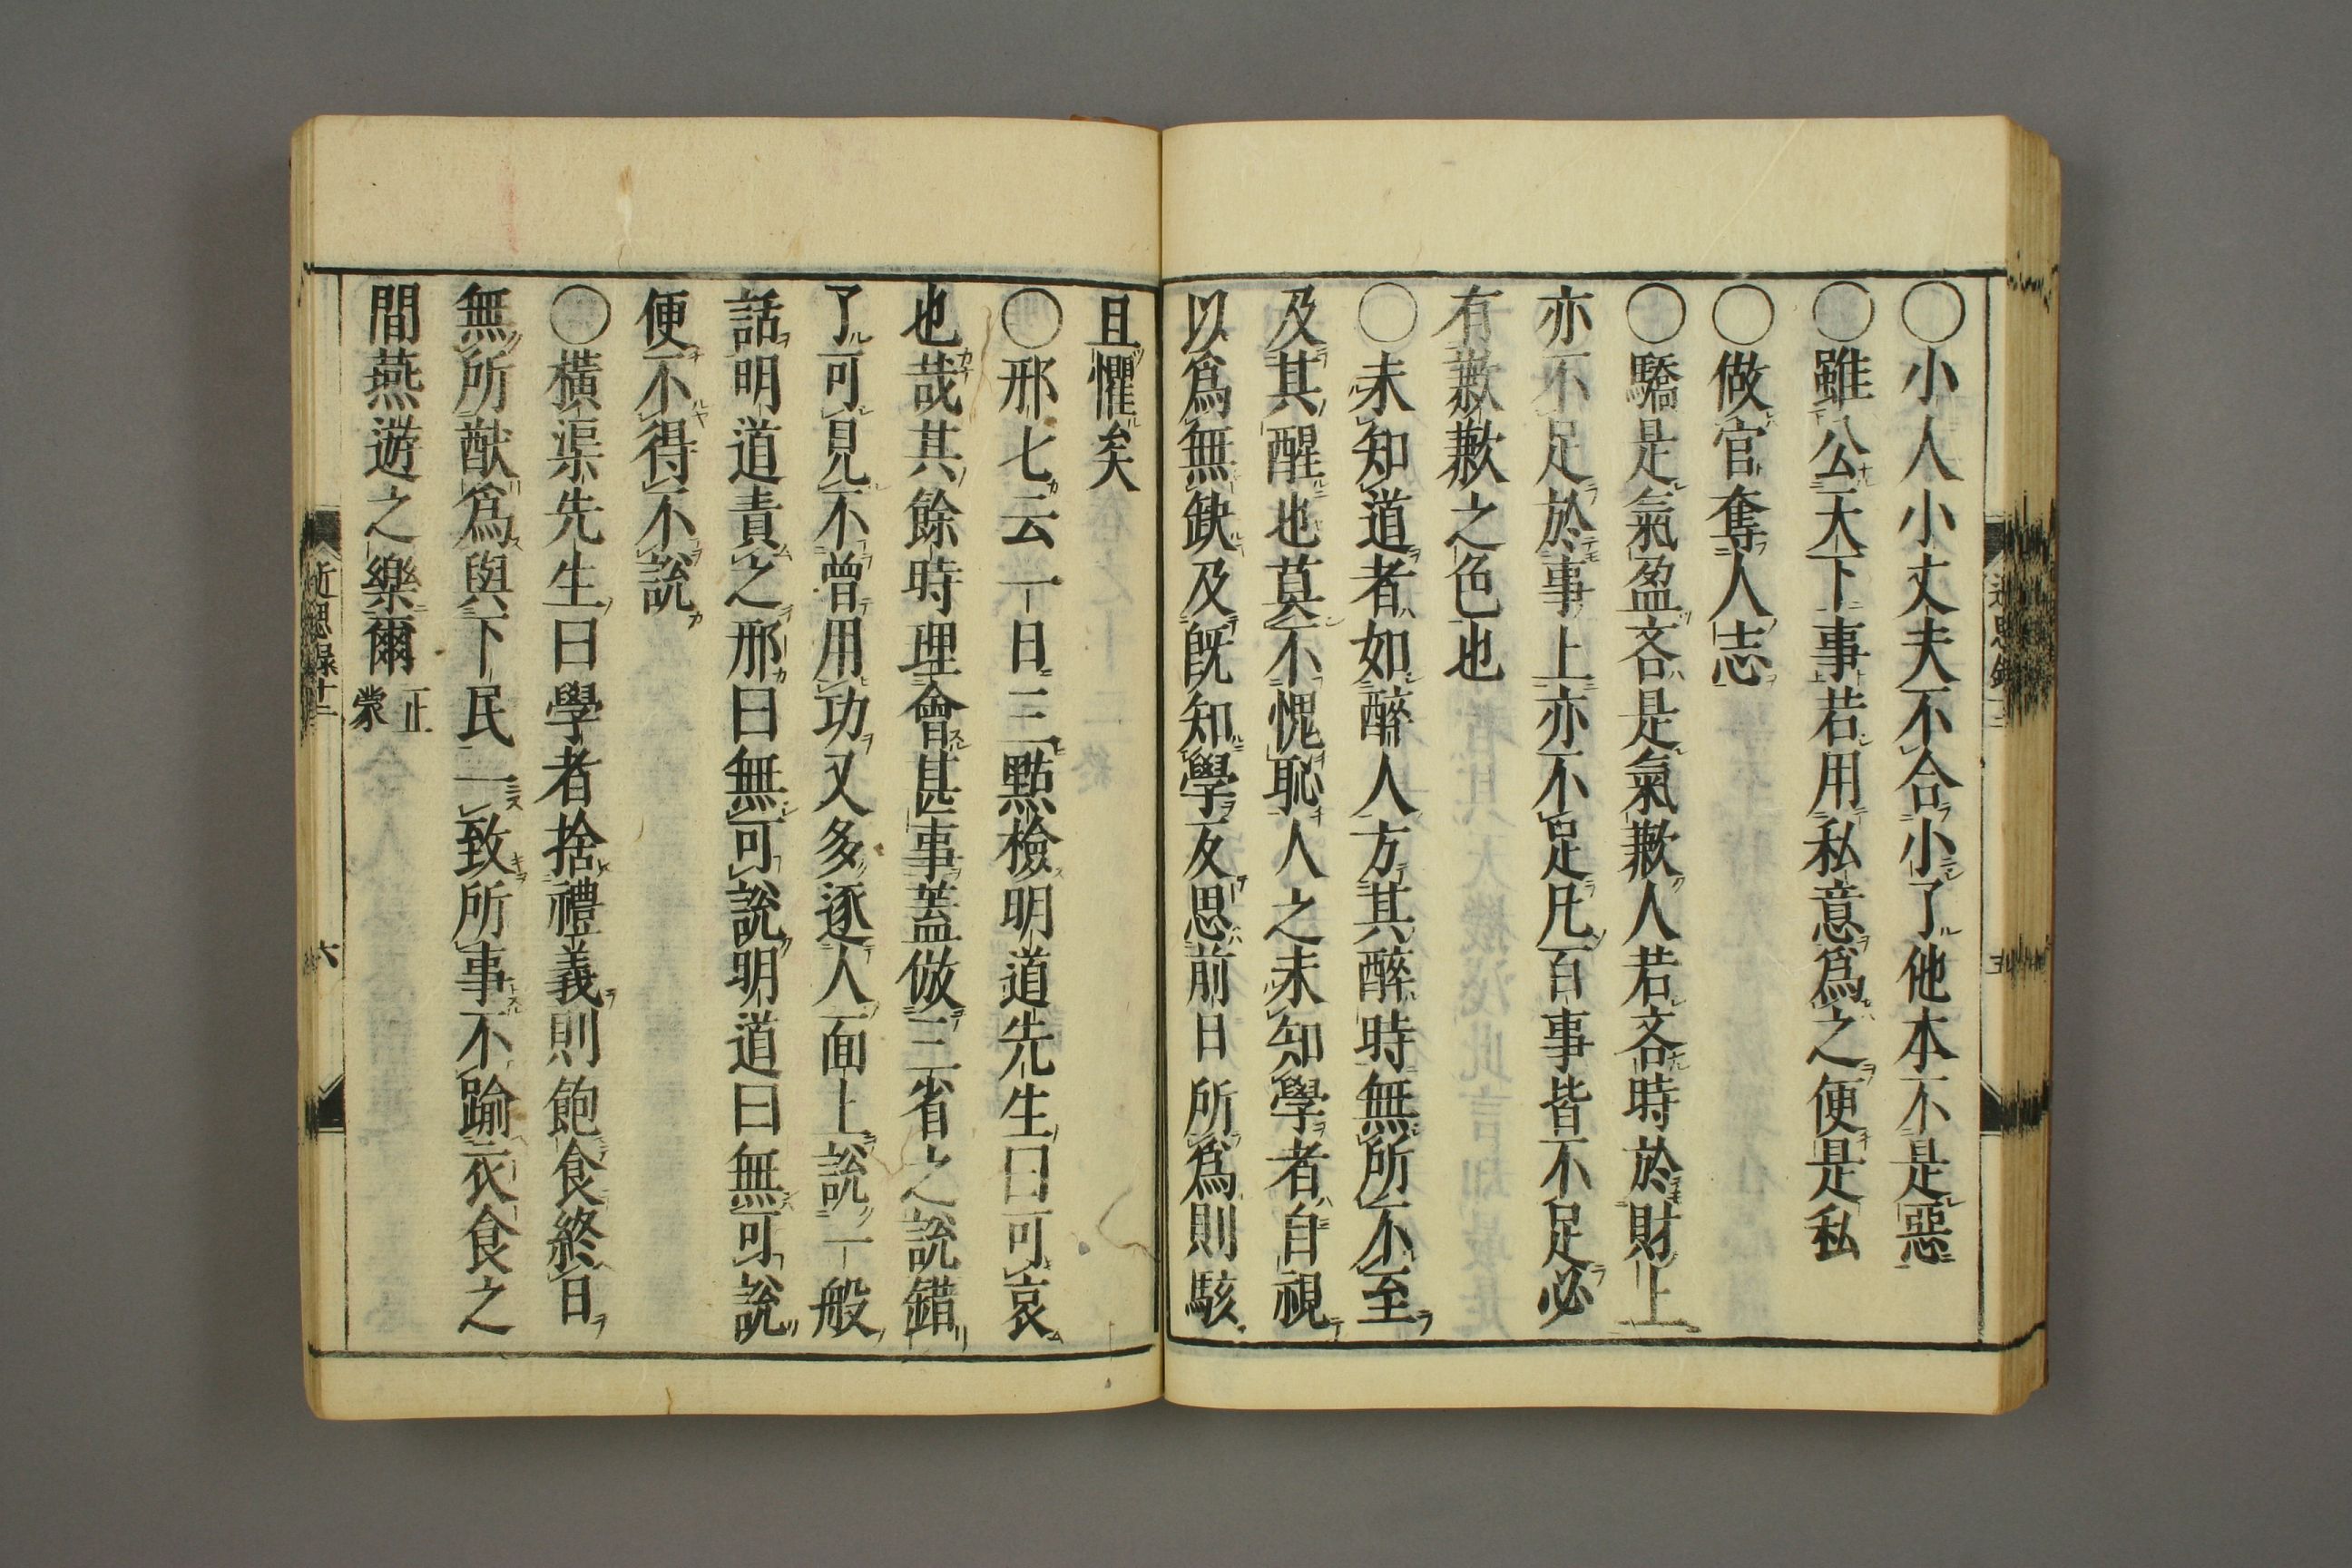 〇小人小丈夫不合小了他本不是惡
〇雖公天下事若用私意爲之便是私
〇做官奪人志
〇驕是氣盈吝是氣歉人若吝時於財上
亦不足於事上亦不足凡百事皆不足必
有歉歉之色也
〇未知道者如醉人方其醉時無所不至
及其醒也莫不愧恥人之未知學者自視
以爲無缺及既知學反思前日所爲則駭
且懼矣
〇邢七云一日三點檢明道先生曰可哀
也哉其餘時理會甚事蓋倣三省之説錯
了可見不曾用功又多逐人面上説一般
話明道責之邢曰無可説明道曰無可説
便不得不説
〇横渠先生曰學者捨禮義則飽食終日
無所猷爲與下民一致所事不踰衣食之
間燕遊之樂爾 正蒙
近思録十二
六